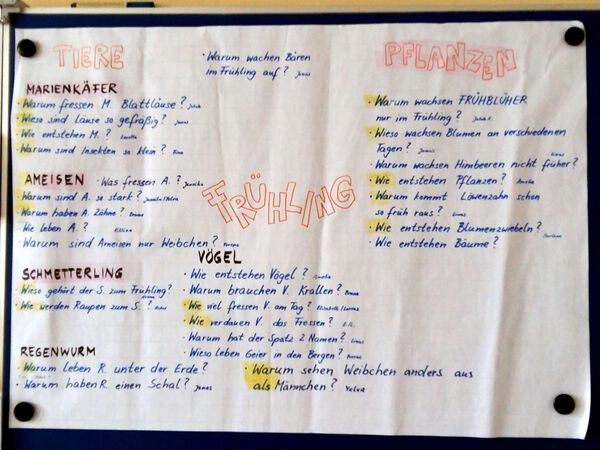 TIERE
• Warum wachen Bären
im Frühling auf? Jonas
MARIENKÄFER
• Warum fressen M. Blattläuse?
• Wieso sind Läuse so gefräßig? Jonas
• Wie entstehen M.?
• Warum sind Insekten so klein? Finn
AMEISEN • Was fressen A.? Jannika
• Warum sind A. so stark?
• Warum haben A. Zähne?
Wie leben A.?
• Warum sind Ameisen nur Weibchen?
SCHMETTERLING
• Wieso gehört der S. zum Frühling?
• Wie werden Raupen zum S.?
REGENWURM
• Warum leben R. unter der Erde?
• Warum haben R. einen Schal? Jonas
FRÜHLING
VÖGEL
• Wie entstehen Vögel? Amelie
• Warum brauchen V. Krallen?
• Wie viel fressen V. am Tag?
• Wie verdauen V. das Fressen?
• Warum hat der Spatz 2 Namen? Linus
• Wieso leben Geier in den Bergen?
• Warum sehen Weibchen anders aus
als Männchen?
PFLANZEN
• Warum wachsen FRÜHBLÜHER
nur im Frühling?
• Wieso wachsen Blumen an verschiedenen
Tagen? Linus
• Warum wachsen Himbeeren nicht früher?
• Wie entstehen Pflanzen? Amelie
• Warum kommt Löwenzahn schon
so früh raus? Linus
• Wie entstehen Blumenzwiebeln?
• Wie entstehen Bäume?